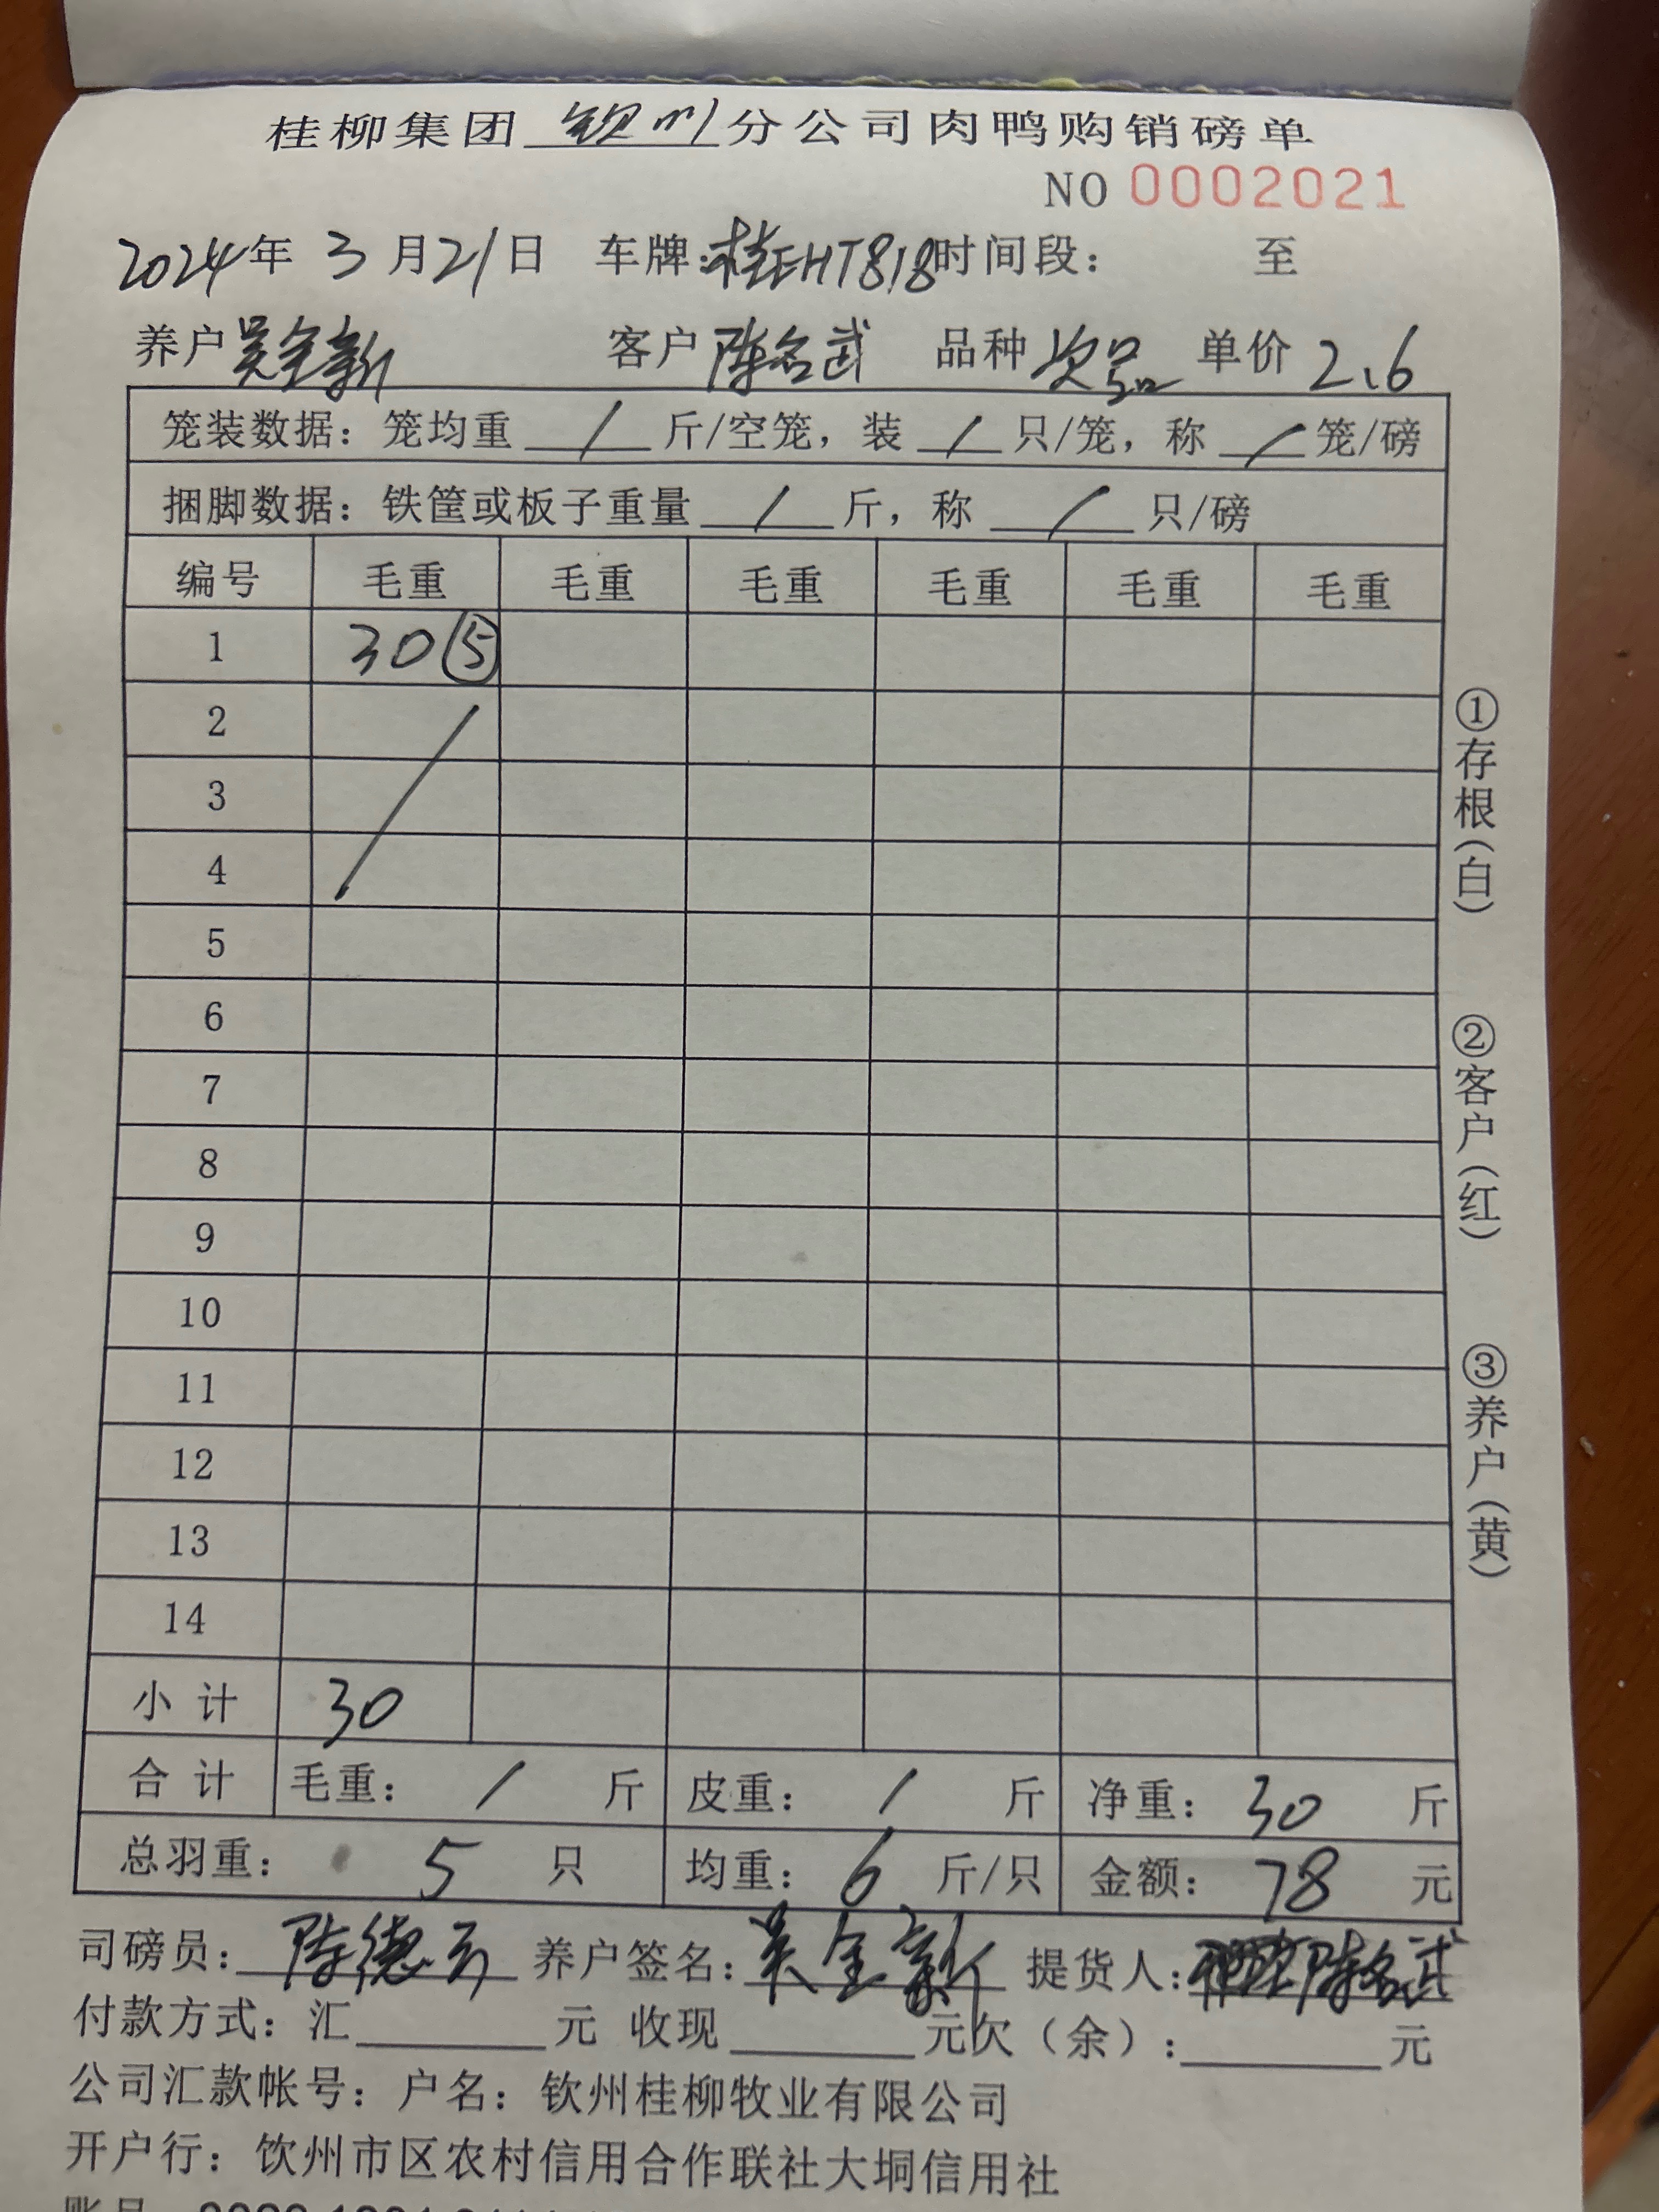 桂柳集团 钦州 分公司肉鸭购销磅单
NO 0002021
2024年 3 月21日 车牌:桂EHT818 时间段: 至
养户 吴全新 客户 陈名武 品种 次品 单价 2.6
笼装数据：笼均重 / 斤/空笼，装 / 只/笼，称 / 笼/磅
捆脚数据：铁筐或板子重量 / 斤，称 / 只/磅
编号 毛重 毛重 毛重 毛重 毛重 毛重
1 30⑤
2
3
4
5
6
7
8
9
10
11
12
13
14
小计 30
合计 毛重： / 斤 皮重： / 斤 净重： 30 斤
总羽重： 5 只 均重： 6 斤/只 金额： 78 元
司磅员：陈德云 养户签名：吴全新 提货人：陈名武
付款方式：汇 元 收现 元欠（余）: 元
公司汇款帐号：户名：钦州桂柳牧业有限公司
开户行：钦州市区农村信用合作联社大垌信用社
①存根（白）
②客户（红）
③养户（黄）